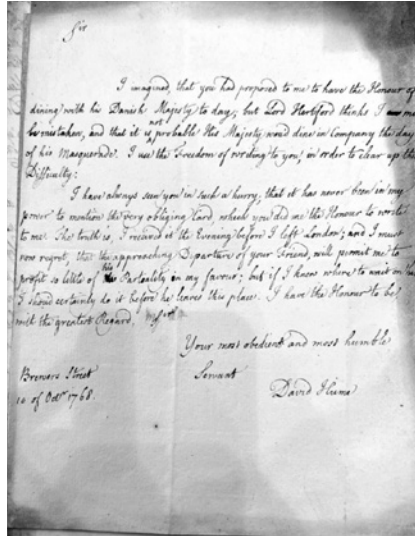 Sir
I imagined, that you had proposed to me to have the Honour of
dining with his Danish Majesty to day; but Lord Hertford thinks I
be mistaken, and that it is not probable His Majesty woud dine in Company the day
of his Masquerade. I use the Freedom of writing to you, in order to clear up this
Difficulty:
I have always seen you in such a hurry, that it has never been in my
power to mention the very obliging Card which you did me the Honour to write
to me. The truth is, I receivd it the Evening before I left London; and I must
now regret, that the approaching Departure of your Friend, will permit me to
profit so little of his Partiality in my favour; but if I knew where to wait on
I shoud certainly do it before he leaves this place. I have the Honour to be
with the greatest Regard, Sir
Your most obedient and most humble
Servant
Brewers Street
10 of Octr 1768.
David Hume